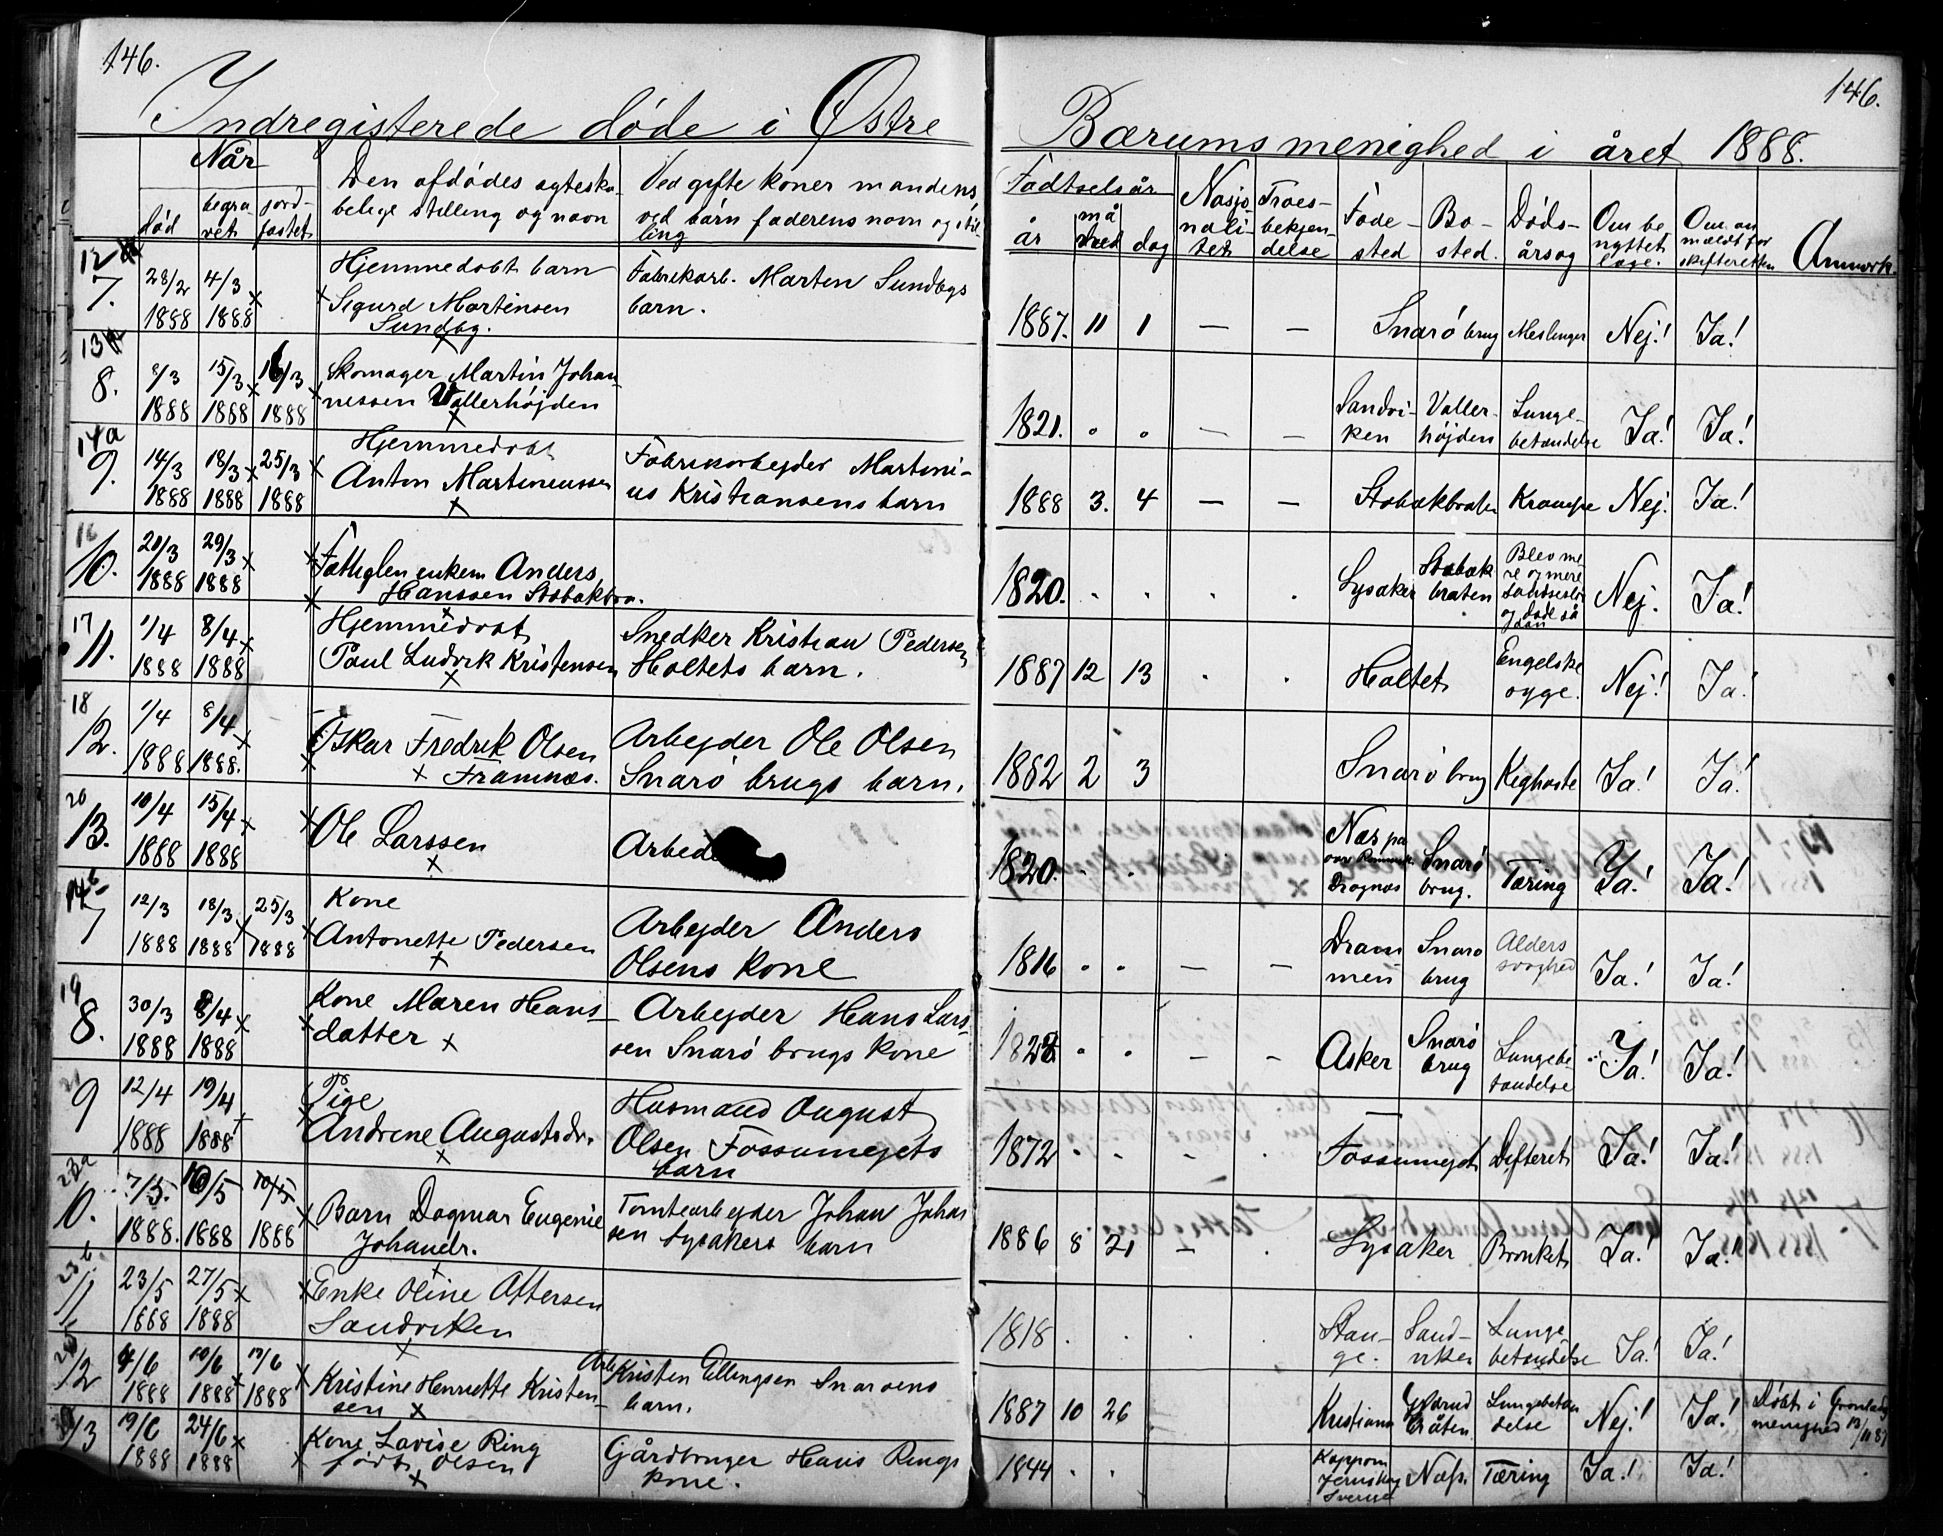 146.
Indregisterede døde i Østre
Når
død
begra-
vet
jord-
fæstet
Den afdødes ægteska-
belige stilling og navn
Ved gifte koner mandens,
ved børn faderens navn og stil
ling
12
7.
28/2
1888
4/3
1888
Hjemmedøbt barn
Sigurd Martinsen
Fabrikarb. Marten Sundbys
barn.
13
8.
8/3
1888
15/3
1888
16/3
1888
Skomager Martin Johan-
nessen Vallerhøjden
14a
9.
14/3
1888
18/3
1888
25/3
1888
Hjemmedøbt
Anton Martineussen
Fabrikarbejder Martini-
us Kristiansens barn
16
10.
20/3
1888
29/3
1888
Fattiglem enkem Anders
Hanssen Stabækbrå.
17
11.
1/4
1888
8/4
1888
Hjemmedøbt
Paul Ludvik Kristensen
Snedker Kristian Pedersen
Holtets barn.
18
12.
1/4
1888
8/4
1888.
Oskar Fredrik Olsen
Framnæs.
Arbejder Ole Olsen
Snarø brugs barn.
20
13.
10/4
1888
15/4
1888
Ole Larssen
14b
7
12/3
1888
18/3
1888
25/3
1888
Kone
Antonette Pedersen
Arbejder Anders
Olsens kone
19
8.
30/3
1888
8/4
1888
Kone Maren Hans-
datter
Arbejder Hans Lars-
sen Snarø brugs kone
21
9
12/4
1888
19/4
1888
Pige
Andrine Augustsdr.
Husmand August
Olsen Fossumejets
barn
10.
7/5.
1888.
10/5
1888
10/5
1888
Barn Dagmar Eugenie
Johansdr.
Tomtearbejder Johan Johan
sen Lysakers barn
11
23/5
1888
27/5
1888
Enke Oline Attersen
Sandviken
12
4/6
1888
10/6
1888
17/6
1888
Kristine Henriette Kristen-
sen
Arb. Kristen Ellingsen Snarøens
barn.
13
19/6
1888
24/6
1888
Kone Lovise Ring
født Olsen
Gårdbruger Hans Rings
kone.
146.
Bærums menighed i året 1888.
Fødtselsår
år
må
ned
dag
Nasjo-
nali-
tet
Troes-
bekjen-
delse
Føde-
sted
Bo-
sted.
Døds-
årsag
Om be-
nyttet
læge.
Om an-
mældt for
skifteretten
Anmærk.
1887. 11 1 — — Snarø brug Meslinger Nej! Ja!
1821. — — Sandvi-
ken
Valler-
højden
Lunge-
betændelse
Ja! Ja!
1888 3. 4 — — Stabækbråten Krampe Nej. Ja!
1820. Lysaker Stabæk
bråten
Blev me-
re og mere
og døde så
Nej. Ja!
1887 12 13 Holtet Engelske
syge.
Nej! Ja!
1882 2 3 Snarø brug Kighoste Ja! Ja!
1820. Næs på
Snarø
brug.
Tæring Ja! Ja!
1816 — — Dram
men
Snarø
brug
Alders
svaghed
Ja! Ja!
— — Asker Snarø
brug
Lungebe-
tændelse
Ja! Ja!
1872 Fossumejet Difterit Ja! Ja!
1886 8 21 — Lysaker Bronkit Ja! Ja!
1818. Stan-
ge.
Sand-
viken
Lunge
betændelse
Ja! Ja!
1887 10 26 Kristiania
bråten
Lungebetæn
delse
Nej! Ja! Døbt i Grønlands
menighed 13/11 87
1844 Sverige
Næs. Tæring Ja! Ja!